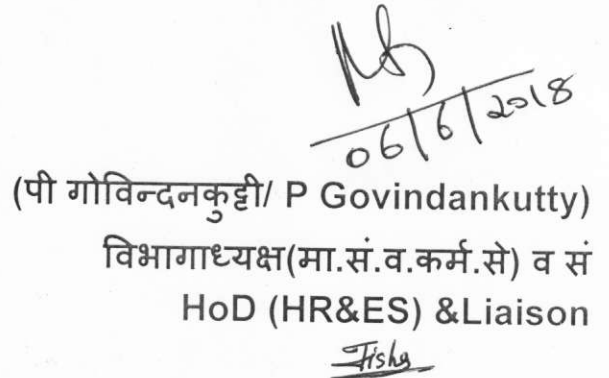 06/6/2018
(पी गोविन्दनकुट्टी/ P Govindankutty)
विभागाध्यक्ष(मा.सं.व.कर्म.से) व सं
HoD (HR&ES) &Liaison